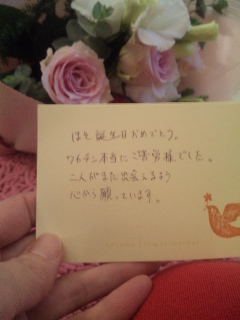 誕生日おめでとう。
本当にご苦労様でした。
二人がまた出会えるよう
心から願っています。